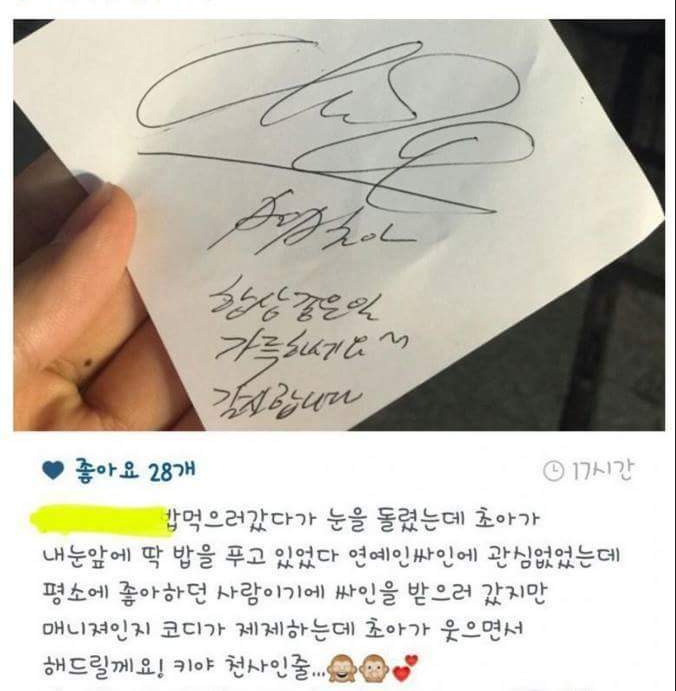 초아
항상 좋은일
가득하세요~
감사합니다
좋아요 28개
17시간
밥먹으러갔다가 눈을 돌렸는데 초아가
내눈앞에 딱 밥을 푸고 있었다 연예인싸인에 관심없었는데
평소에 좋아하던 사람이기에 싸인을 받으러 갔지만
매니져인지 코디가 제제하는데 초아가 웃으면서
해드릴께요! 키야 천사인줄...🙈🐵💕